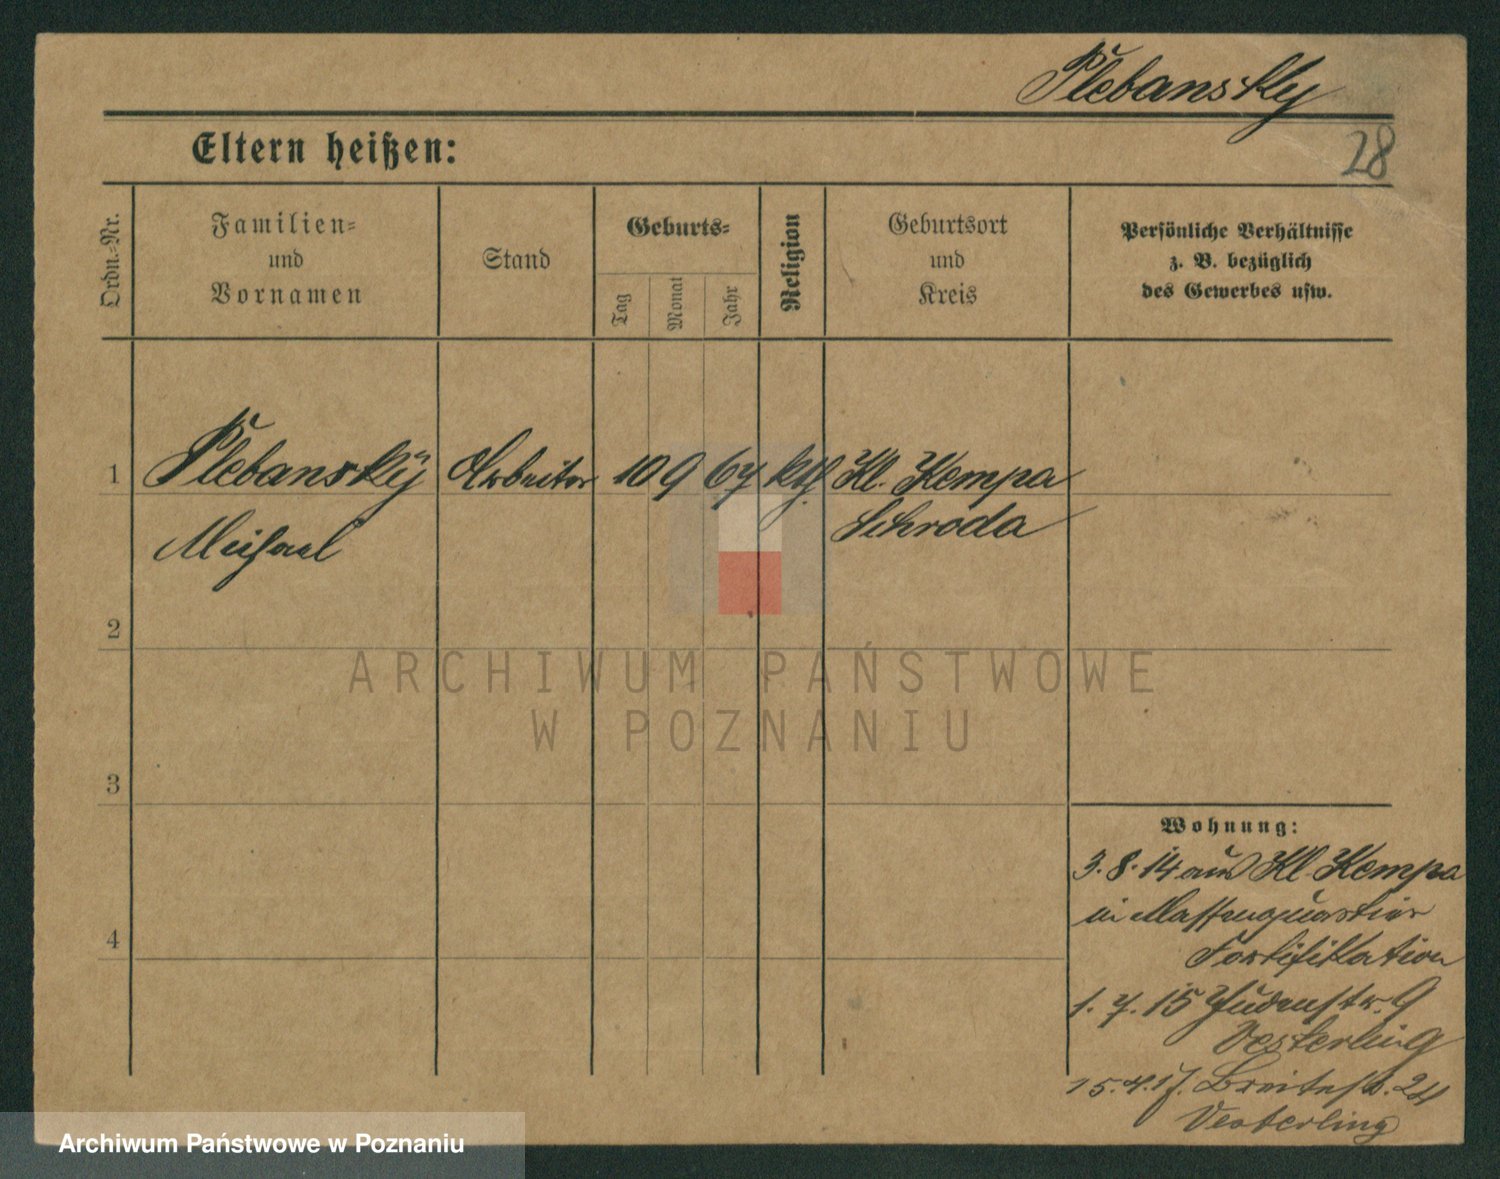 Plebansky
28
Eltern heißen:
Ordn.-Nr.
Familien-
und
Vornamen
Stand
Geburts-
Tag
Monat
Jahr
Religion
Geburtsort
und
Kreis
Persönliche Verhältnisse
z. B. bezüglich
des Gewerbes usw.
1 Plebansky Arbeiter 10 9 67 kth. Kl. Kempa
Michael Schroda
2
3
4
Wohnung:
3. 8. 14 aus Kl. Kempa
in Massenquartier
Fortifikation
1. 7. 15 Judenstr. 9
Vesterling
15. 4. 17. Breitestr. 24
Vesterling
ARCHIWUM PAŃSTWOWE
W POZNANIU
Archiwum Państwowe w Poznaniu